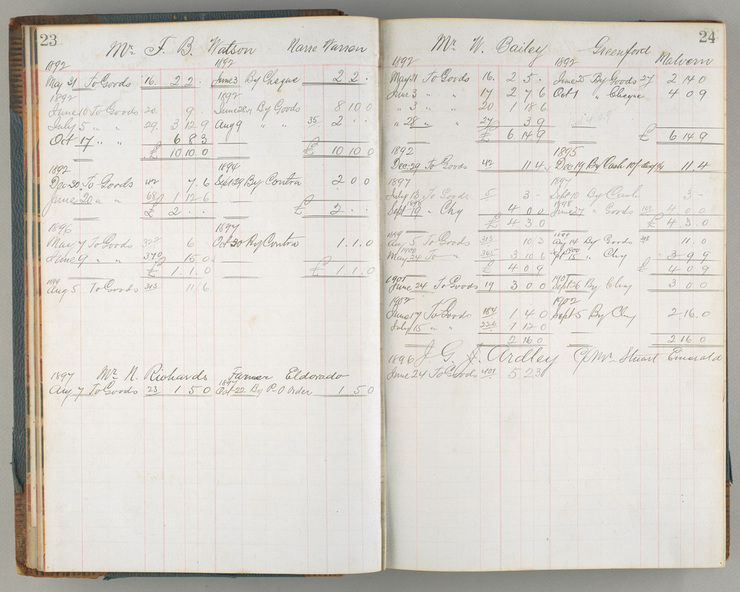 23
Mr. F. B. Watson Narre Warran
1892 1892
May 31 To Goods 16. 2 2 . June 3 By Cheque 2 2 .
1892 1892
June 10 To Goods 20. 9 . June 28 By Goods 8 10 0
July 5 " " 29. 3 12 9 Aug 9 " " 35 2 . .
Oct 17 " " 6 8 3
£ 10 10 0 £ 10 10 0
1892 1894
Dec 20 To Goods 42 7 . 6 Sept 29 By Contra 2 0 0
June 20 " " 68 1 12 6
£ 2 . . £ 2 . .
1896 1897
May 7 To Goods 6 . Oct 30 By Contra 1 . 1 . 0
June 9 " " 372 15 0
£ 1 . 1 . 0 £ 1 . 1 . 0
Aug 5 To Goods 313 11 6
1897 Mr. N. Richards Farmer Eldorado
Aug 7 To Goods 23 1 5 0 Oct 22 By P.O Order 1 5 0
24
Mr. W. Bailey Greenford Malvern
1892 1892
May 31 To Goods 16. 2 5 . June 25 By Goods 27 2 14 0
June 3 " " 17 2 7 6 Oct 1 " Cheque 4 0 9
" 3 " " 20 1 18 6
" 28 " " 27 3 . 9
£ 6 14 9 £ 6 14 9
1892 1895
Dec 29 To Goods 42 11 4 Dec 19 By Cash 11 . 4
1897 1897
July 13 To Goods 5 3 . Sept 10 By Cash 3 .
Sept 19 " Chq 4 0 0 June 27 " Goods 4 0 0
£ 4 3 0 £ 4 . 3 . 0
Aug 5 To Goods 313 10 3 Aug 14 By Goods 11 . 0
May 24 To " 325 3 10 6 Sept 15 " Chq 3 9 9
£ 4 0 9 £ 4 0 9
June 24 To Goods 19 3 0 0 Sept 26 By Chq 3 0 0
1902 1902
June 17 To Goods 184 1 4 0 Sept 5 By Chq 2 16 . 0
July 15 " " 224 1 12 0
2 16 0 2 16 0
1896 J. G. J. Ardley C/o Mr. Stuart Emerald
June 24 To Goods 401 5 2 3